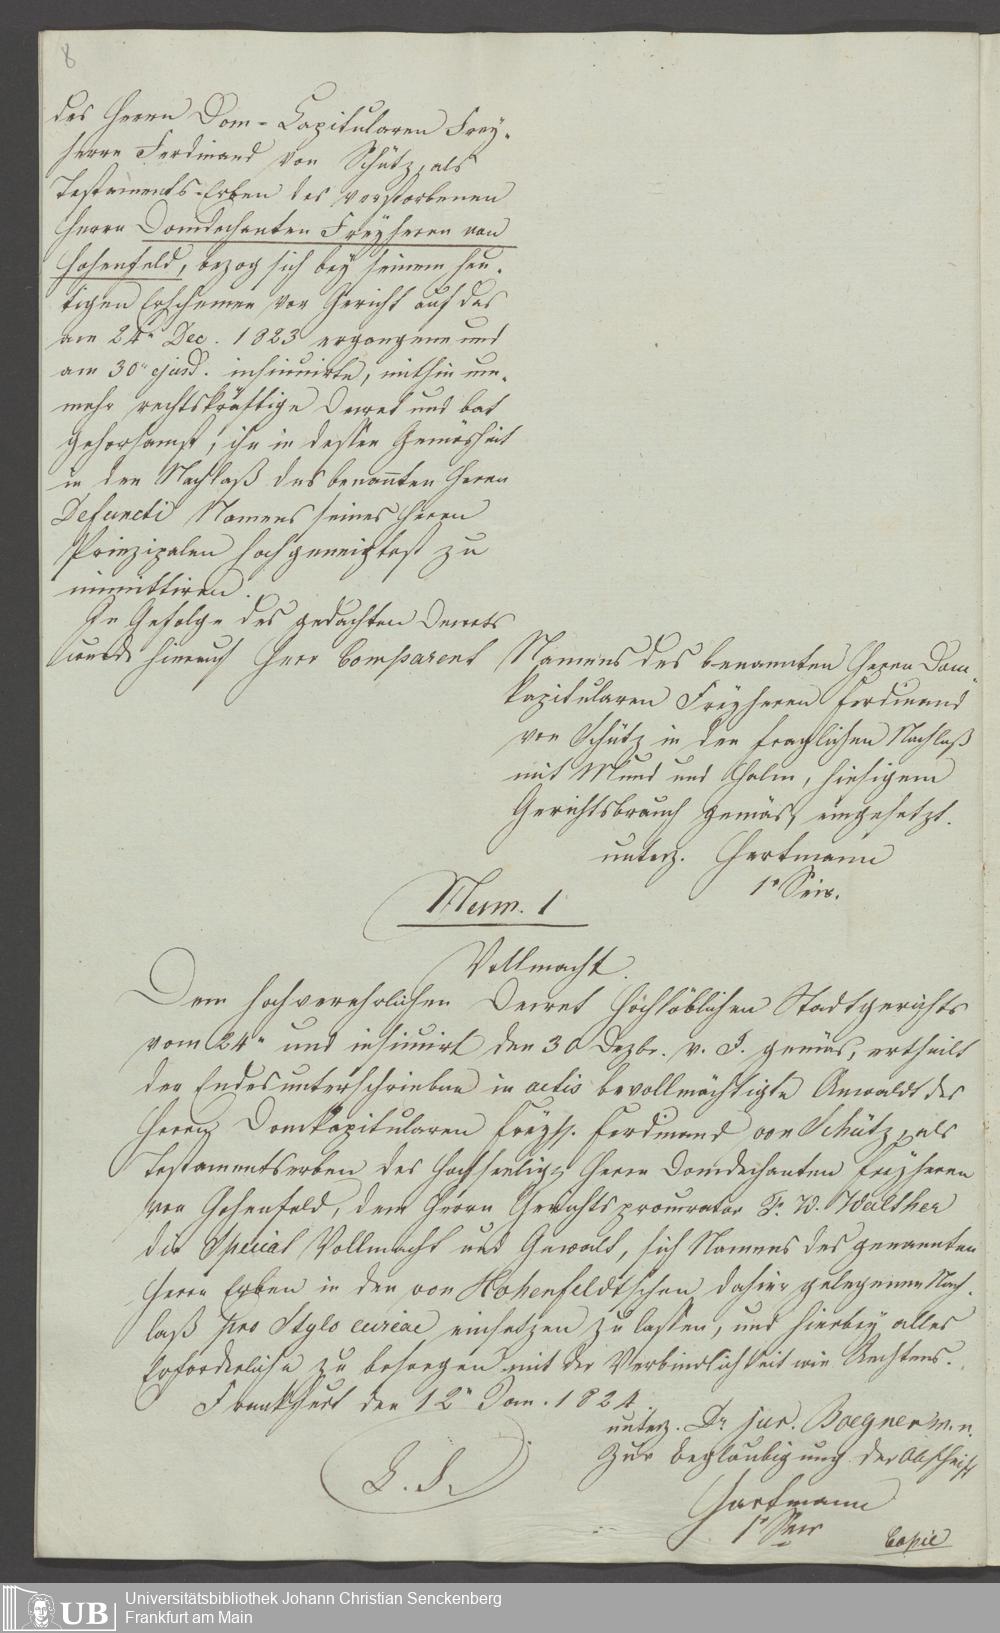 8
des Herrn Dom-Capitularen Frey-
herrn Ferdinand von Schütz, als
Testaments-Erben des verstorbenen
Herrn Domdechanten Freyherrn von
Hohenfeld, bezog sich bey seinem heu-
tigen Erscheinen vor Gericht auf das
am 24n Dec. 1823 ergangene und
am 30n ejusd. insinuirte, mithin nun-
mehr rechtskräftige Decret und bat
gehorsamst, ihn in dessen Gemäsheit
in den Nachlaß des benannten Herrn
Defuncti Namens seines Herrn
Prinzipalen hochgeneigtest zu
immittiren.
In Gefolge des gedachten Decrets
wurde hierauf Herr Comparent
Namens des benannten Herrn Dom-
kapitularen Freyherrn Ferdinand
von Schütz in den fraglichen Nachlaß
mit Mund und Halm, hiesigem
Gerichtsbrauch gemäs, eingesetzt.
unterz. Hartmann
1r Secr.
Num. 1
Vollmacht.
Dem hochverehrlichen Decret Hochlöblichen Stadtgerichts
vom 24n und insinuirt den 30 Dezbr. v. J. gemäs, ertheilt
der Endesunterschriebne in actis bevollmächtigte Anwaldt des
Herrn Domkapitularen Freyh. Ferdinand von Schütz, als
Testamentserben des hochseelig. Herrn Domdechanten Freyherrn
von Hohenfeld, dem Herrn Gerichtsprocurator F. W. Walther
die Special Vollmacht und Gewalt, sich Namens des genannten
Herrn Erben in den von Hohenfeldtschen dahier gelegenen Nach-
laß pro Stylo curiae einsetzen zu lassen, und hierbey alles
Erforderliche zu besorgen mit der Verbindlichkeit wie Rechtens.
Frankfurt den 12n Jan. 1824.
unterz. Dr jur. Boegner m. n.
Zur Beglaubigung der Abschrift
L. S.
Hartmann
1r Secr
Copie
UB
Universitätsbibliothek Johann Christian Senckenberg
Frankfurt am Main